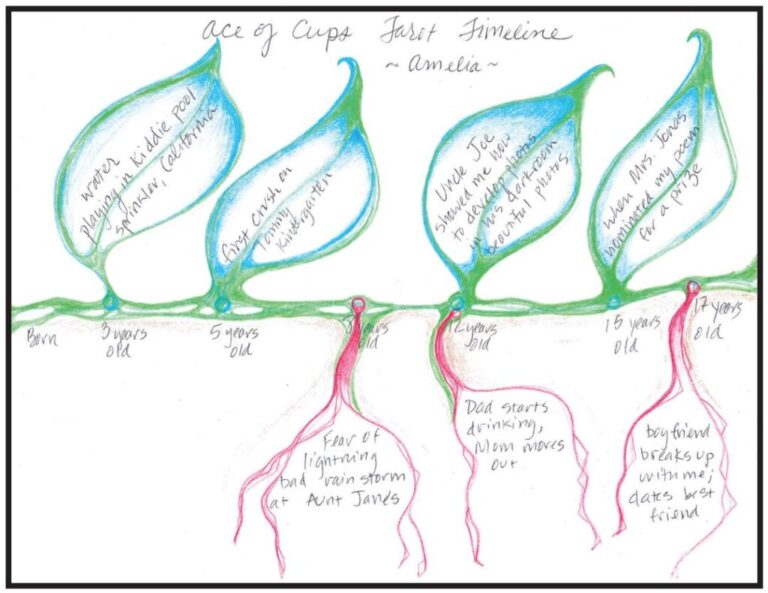 Ace of Cups Tarot Timeline
~ Amelia ~
water
playing in kiddie pool
sprinkler, California
first crush on
Tommy
Kindergarten
Uncle Joe
showed me how
to develop photos
in his darkroom
beautiful photos
when Mrs. Jonas
nominated my poem
for a prize
Born
3 years
old
5 years
old
8 years
old
12 years
old
15 years
old
17 years
old
Fear of
lightning
bad rain storm
at Aunt Jane's
Dad starts
drinking,
Mom moves
out
boyfriend
breaks up
with me;
dates best
friend